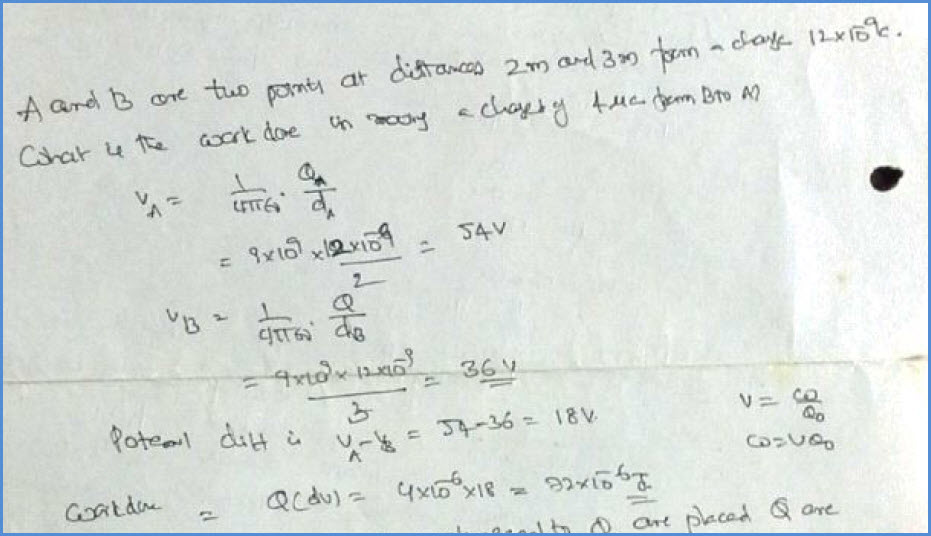 A and B are two points at distances 2m and 3m form a charge 12×10⁻⁹c.
What is the work done in moving a charge of 4μc form B to A?
V_A = 1/4πε₀ · Q_A/d_A
= 9×10⁹ × 12×10⁻⁹/2 = 54V
V_B = 1/4πε₀ · Q/d_B
= 9×10⁹ × 12×10⁻⁹/3 = 36V
V = ω/Q₀
Potenal diff is V_A - V_B = 54-36 = 18V.
ω = VQ₀
Workdone = Q(dV) = 4×10⁻⁶×18 = 72×10⁻⁶J.
are placed Q are